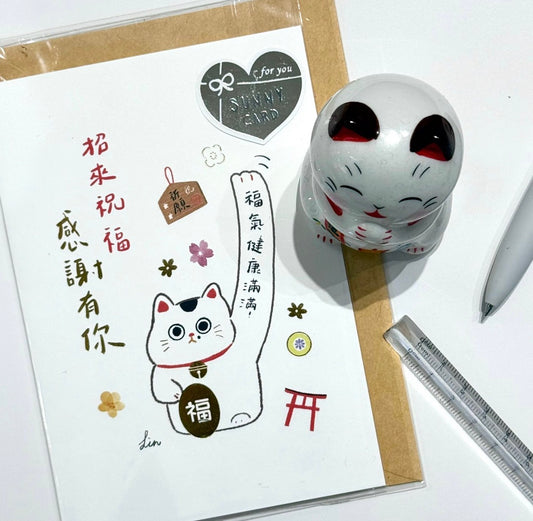 for you
SUNNY
CARD
招來祝福
感謝有你
祈願
福氣健康滿滿!
福
Lin